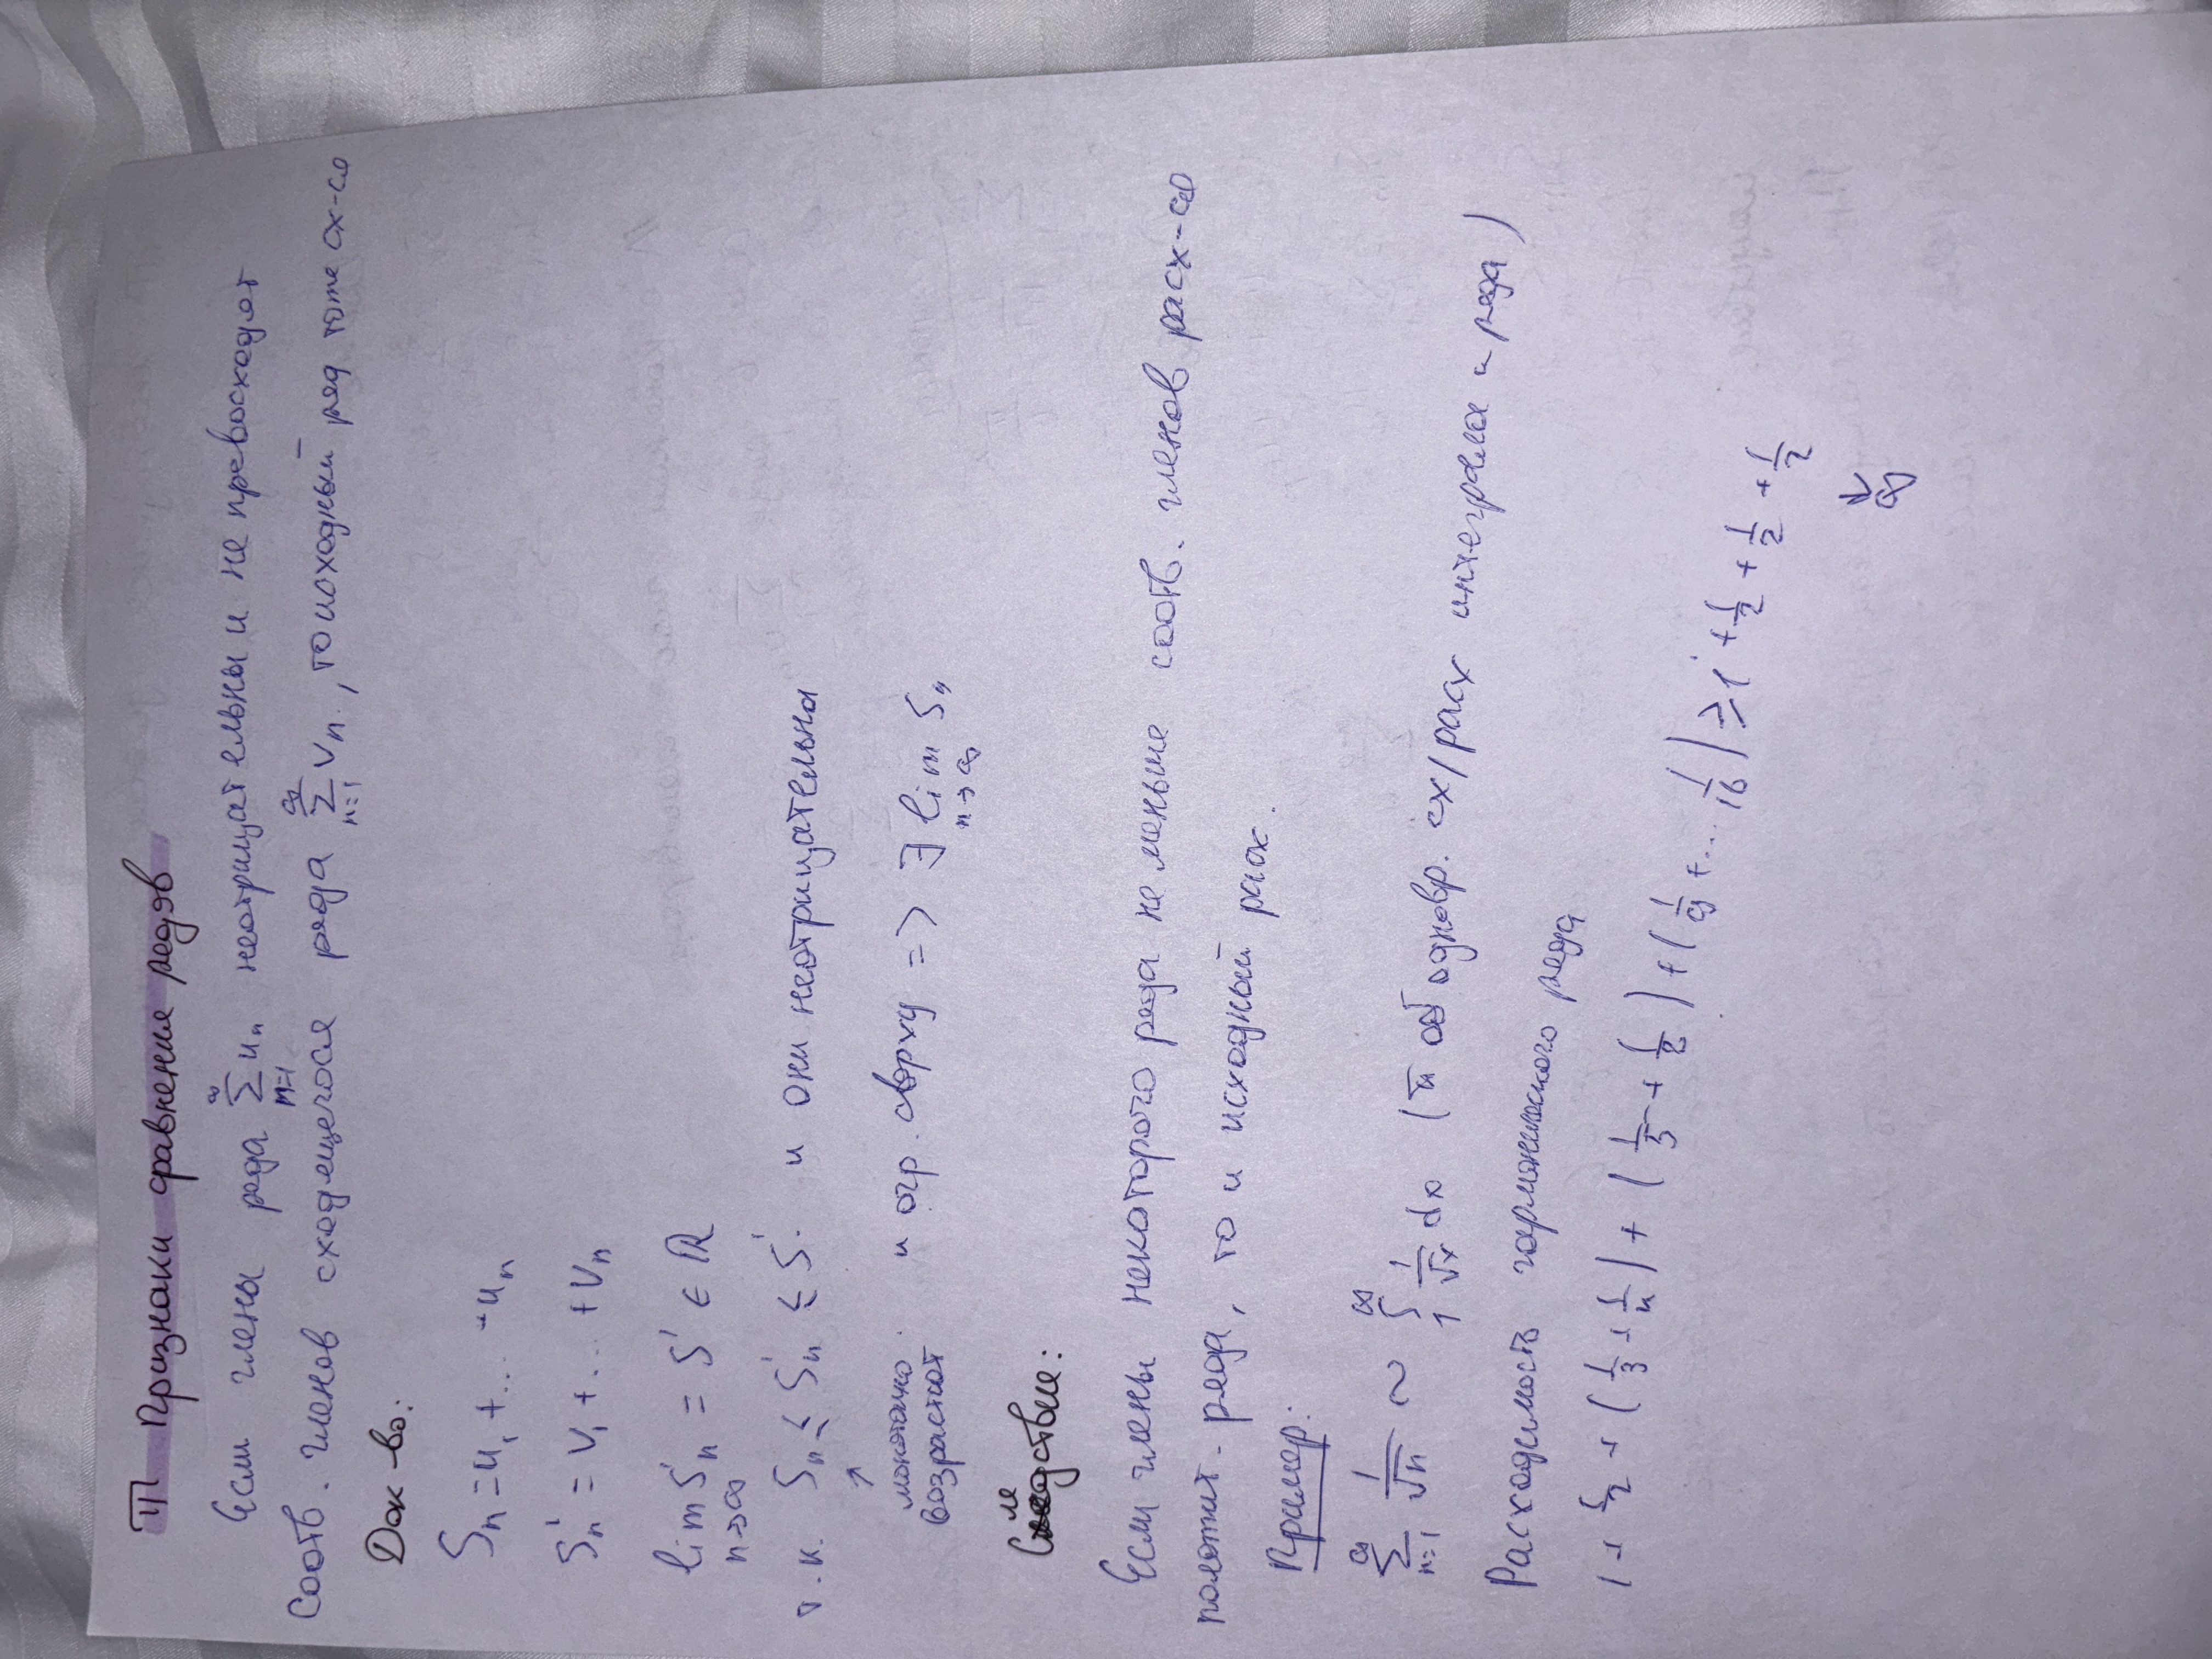 III Признаки сравнения рядов
Если члены ряда ∞ Σ n=1 uₙ неотрицательны и не превосходят
соотв. членов сходящегося ряда ∞ Σ n=1 vₙ, то исходный ряд тоже сх-ся
Док-во:
Sₙ = u₁ + ... + uₙ
Sₙ' = v₁ + ... + vₙ
lim Sₙ' = S' ∈ ℝ
n→∞
т.к. Sₙ ≤ Sₙ' ≤ S' и они неотрицательны
↑
монотонно
возрастют
и огр. сверху => ∃ lim Sₙ
n→∞
Следствие:
Если члены некоторого ряда не меньше соотв. членов расх-ся
полотит. ряда, то и исходный расх.
Пример:
∞ Σ n=1 1/√n ~ ∞ ∫ 1 1/√x dx (т об одновр. сх/расх интеграла и ряда)
Расходимость гармонического ряда
1 + 1/2 + (1/3 + 1/4) + (1/5 + 1/8) + (1/9 + ... 1/16) ≥ 1 + 1/2 + 1/2 + 1/2
↓
∞